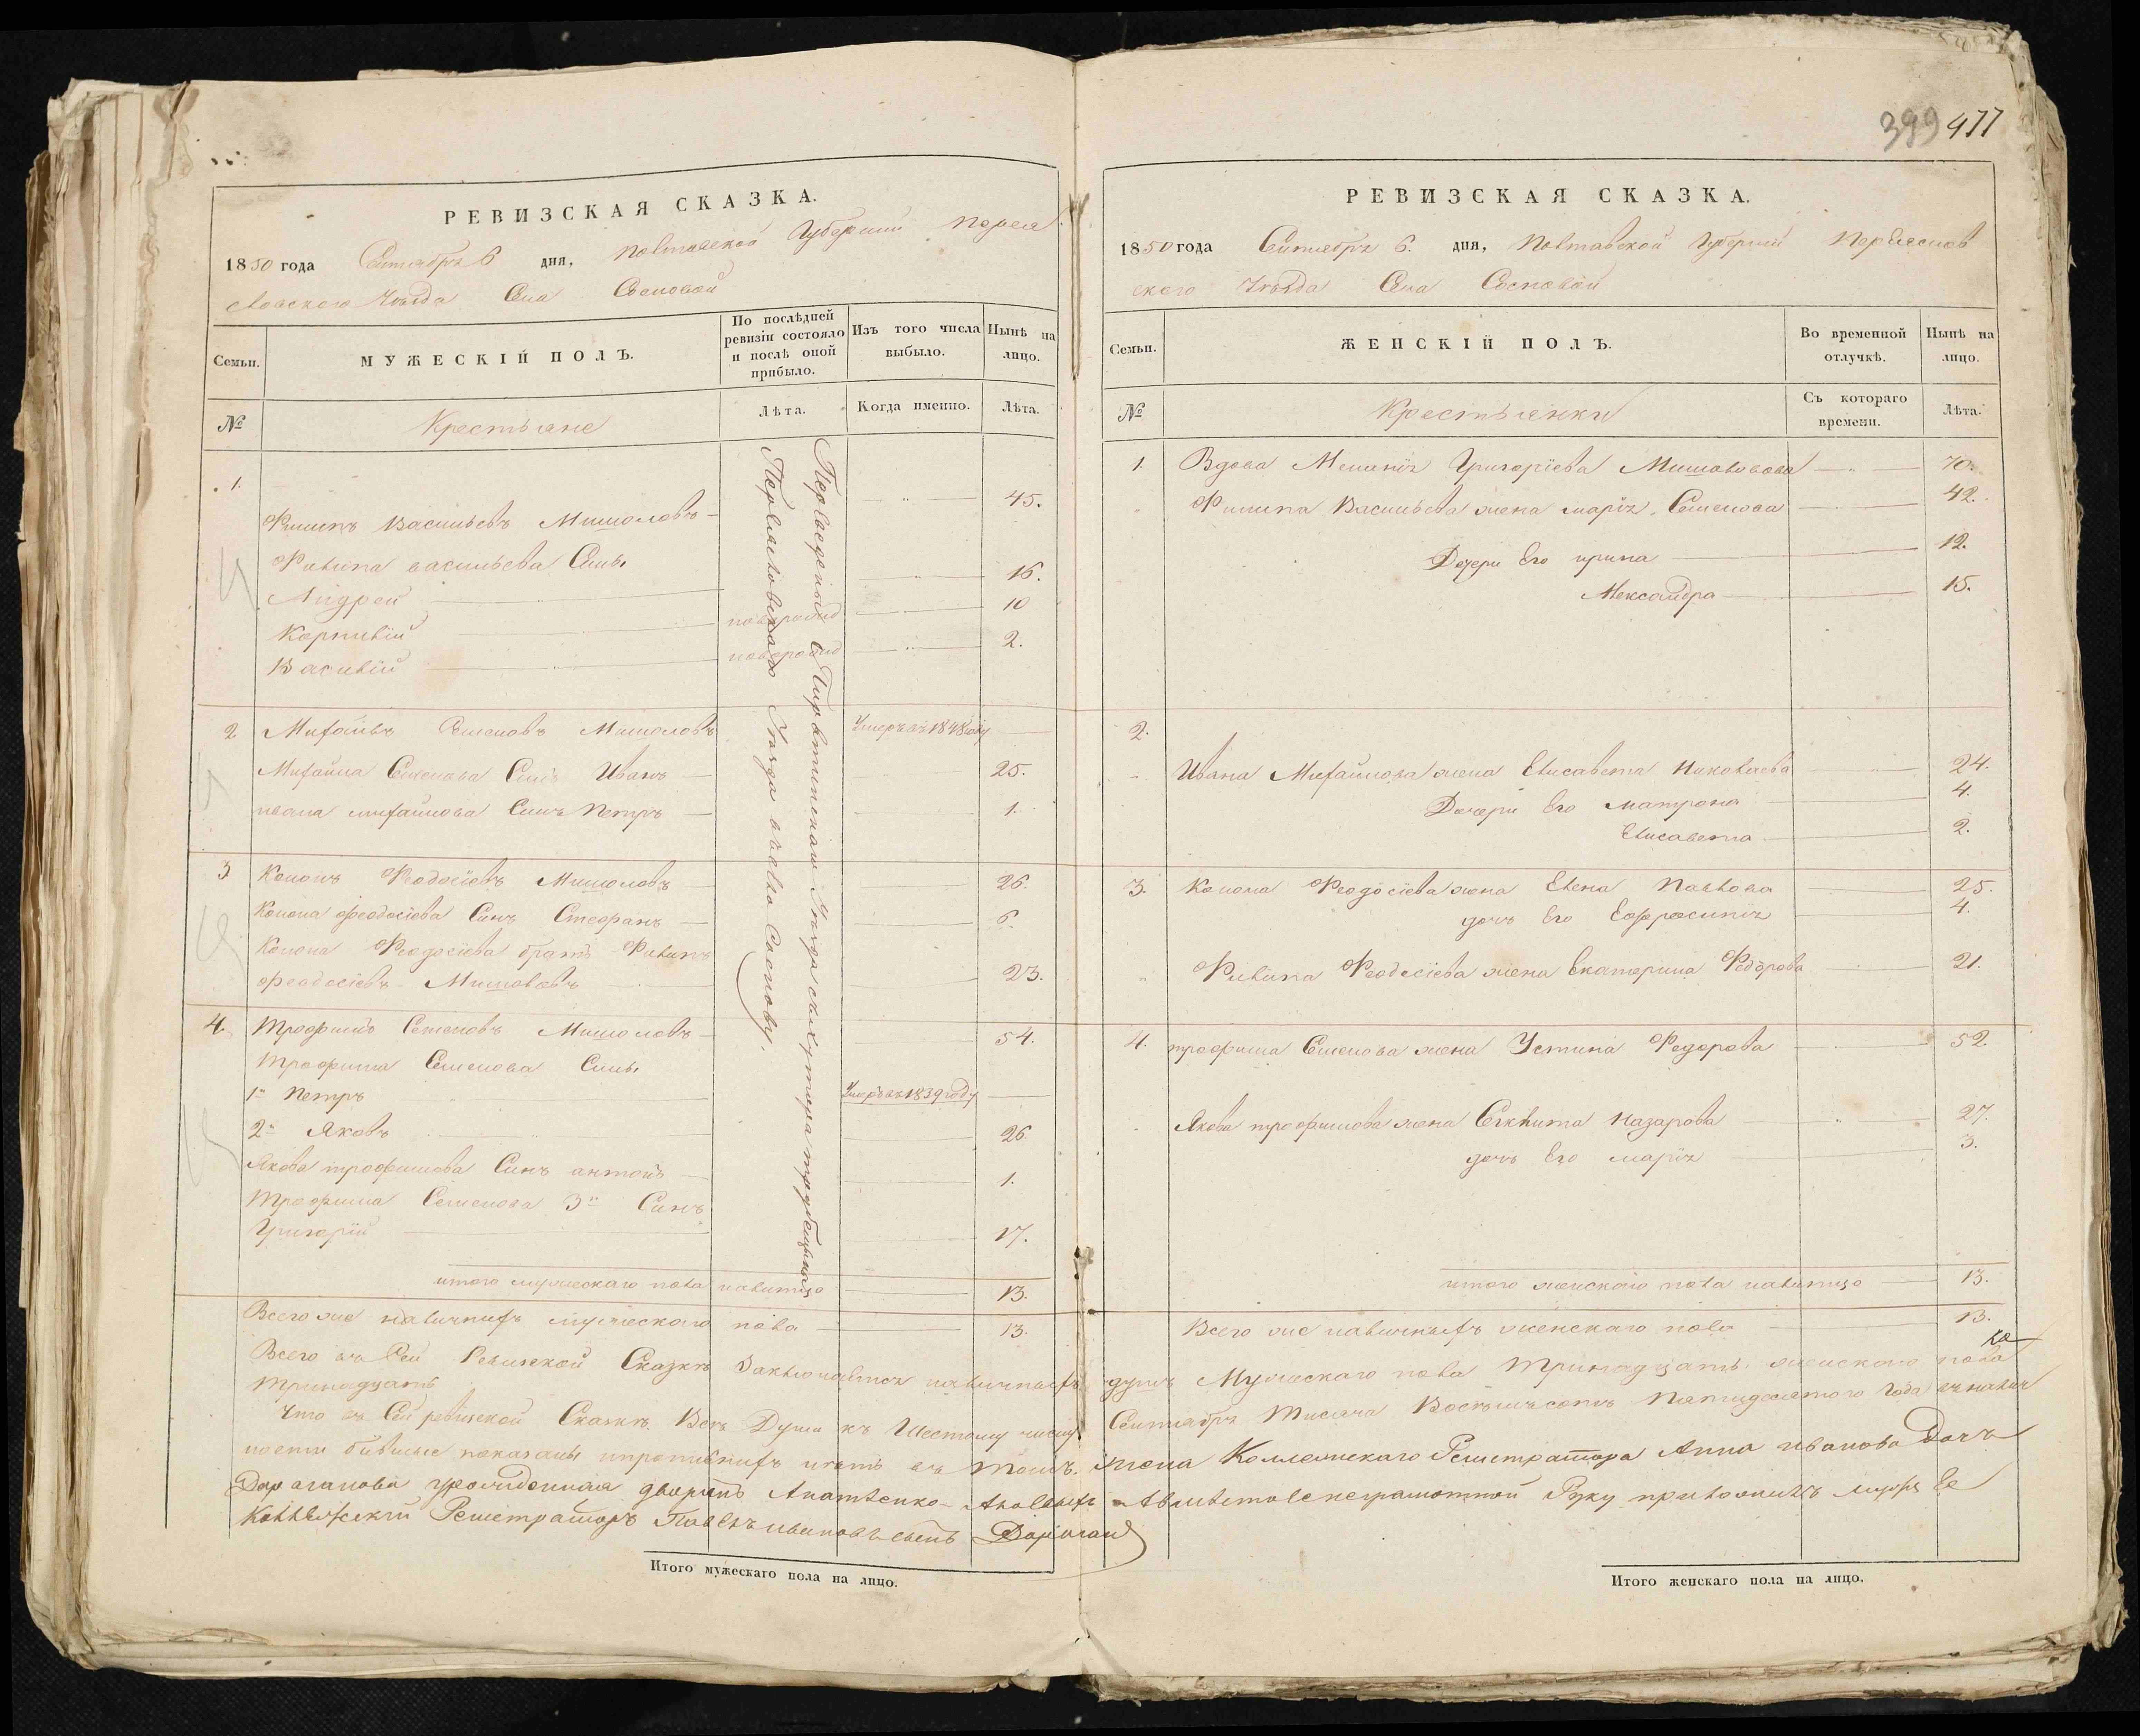 399 477
РЕВИЗСКАЯ СКАЗКА.
1850 года Сентября 6 дня, Полтавской Губернии Перея
славского Уезда Села Сосновой
Семьи.
МУЖЕСКІЙ ПОЛЪ.
По послѣдней ревизіи состояло и послѣ оной прибыло.
Изъ того числа выбыло.
Нынѣ на лицо.
№
Крестьяне
Лѣта.
Когда именно.
Лѣта.
Переведены с Пирятинскаго Уезда
Переяславского Уезда в село Сосновку.
1.
Филипъ Васильевъ Мишоловъ 45.
Филипа васильева Сыны
Андрей 16.
Корнилій новорожд 10
Василій новорожд 2.
2 Михайлъ Семеновъ Мишоловъ Умеръ въ 1848 году
Михайла Семенова Синъ Иванъ 25.
ивана михайлова Синъ Петръ 1.
3 Кононъ Феодосіевъ Мишоловъ 26.
Конона феодосіева Синъ Стефанъ 6.
Конона Феодосіева братъ Филипъ
Феодосіевъ Мишоловъ 23.
4. Трофимъ Семеновъ Мишоловъ 54.
Трофима Семенова Сины
1й Петръ Умеръ въ 1839 году
2й Яковъ 26
Якова трофимова Синъ антонъ 1.
Трофима Семенова 3й Синъ
Григорій 17.
итого мужескаго пола налицо 13.
Всего же наличнихъ мужескаго пола 13.
РЕВИЗСКАЯ СКАЗКА.
1850 года Сентября 6. дня, Полтавской Губерний Переяслав
ского Уезда Села Сосновой
Семьи.
ЖЕНСКІЙ ПОЛЪ.
Во временной отлучкѣ.
Нынѣ на лицо.
№
Крестьянки
Съ котораго времени.
Лѣта.
1. Вдова Меланія Григоріева Мишоловова 70.
Филипа Васильева жена марія Семенова 42.
Дочери Его ирина 12.
Александра 15.
2.
Ивана Михайлова жена Елисавета Николаева 24.
Дочери Его матрона 4.
Елисавета 2.
3. Конона Феодосіева жена Елена Павлова 25.
дочъ Его Ефросинія 4.
Филипа Феодосіева жена Екатерина Федорова 21.
4. трофима Семенова жена Устина Федорова 52.
Якова трофимова жена назарова 27.
дочъ Его марія 3.
итого женскаго пола налицо 13.
Всего же наличныхъ женскаго пола 13.
Всего въ Сей Ревизской Сказкѣ Заключается наличныхъ душъ Мужескаго пола Тринадцать женскаго пола
Тринадцать
Что въ Сей ревизской Сказкѣ Всѣ Души къ Шестому числу Сентября Тисяча Восемьсотъ Патидесятого Года въ налич
ности бившые показаны ипротивнихъ нетъ въ томъ. жена Коллежскаго Регистратора Анна иванова Дочъ
Дараганова урожденная неграмотной Руку приложилъ мужъ Ее
Коллежскій Регистраторъ Павелъ ивановъ сынъ Дараган
Итого мужескаго пола на лицо.
Итого женскаго пола на лицо.